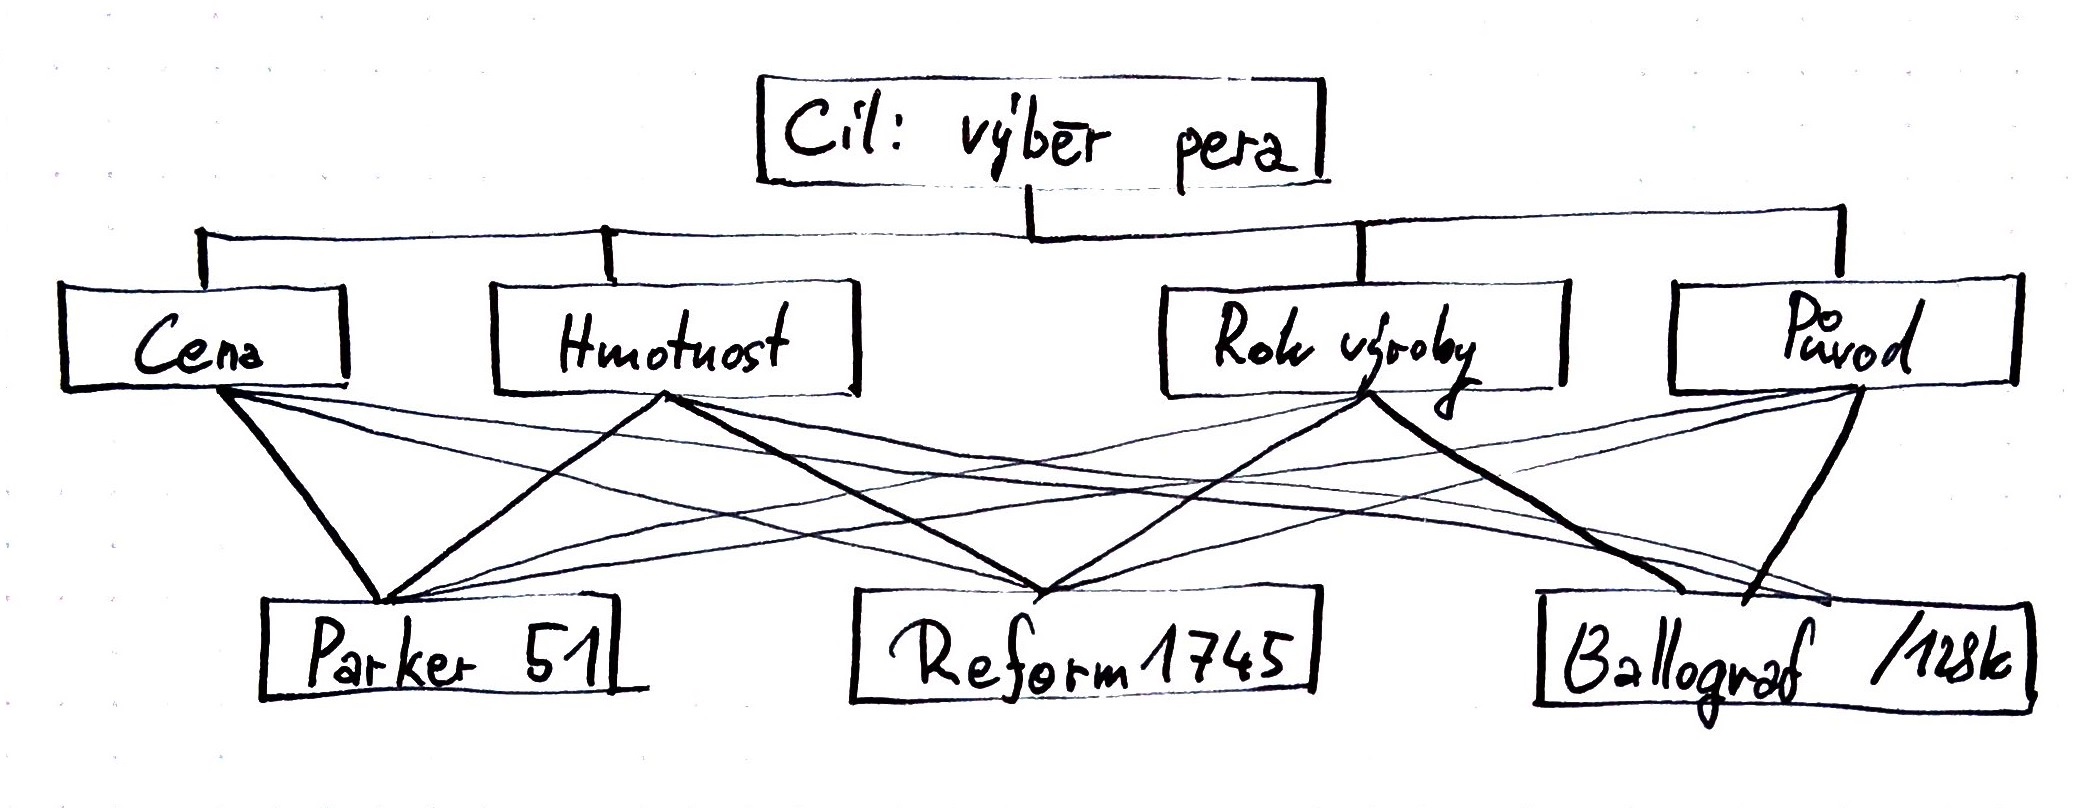 Cíl: výběr pera
Cena
Hmotnost
Rok výroby
Původ
Parker 51
Reform 1745
Ballograf /128k